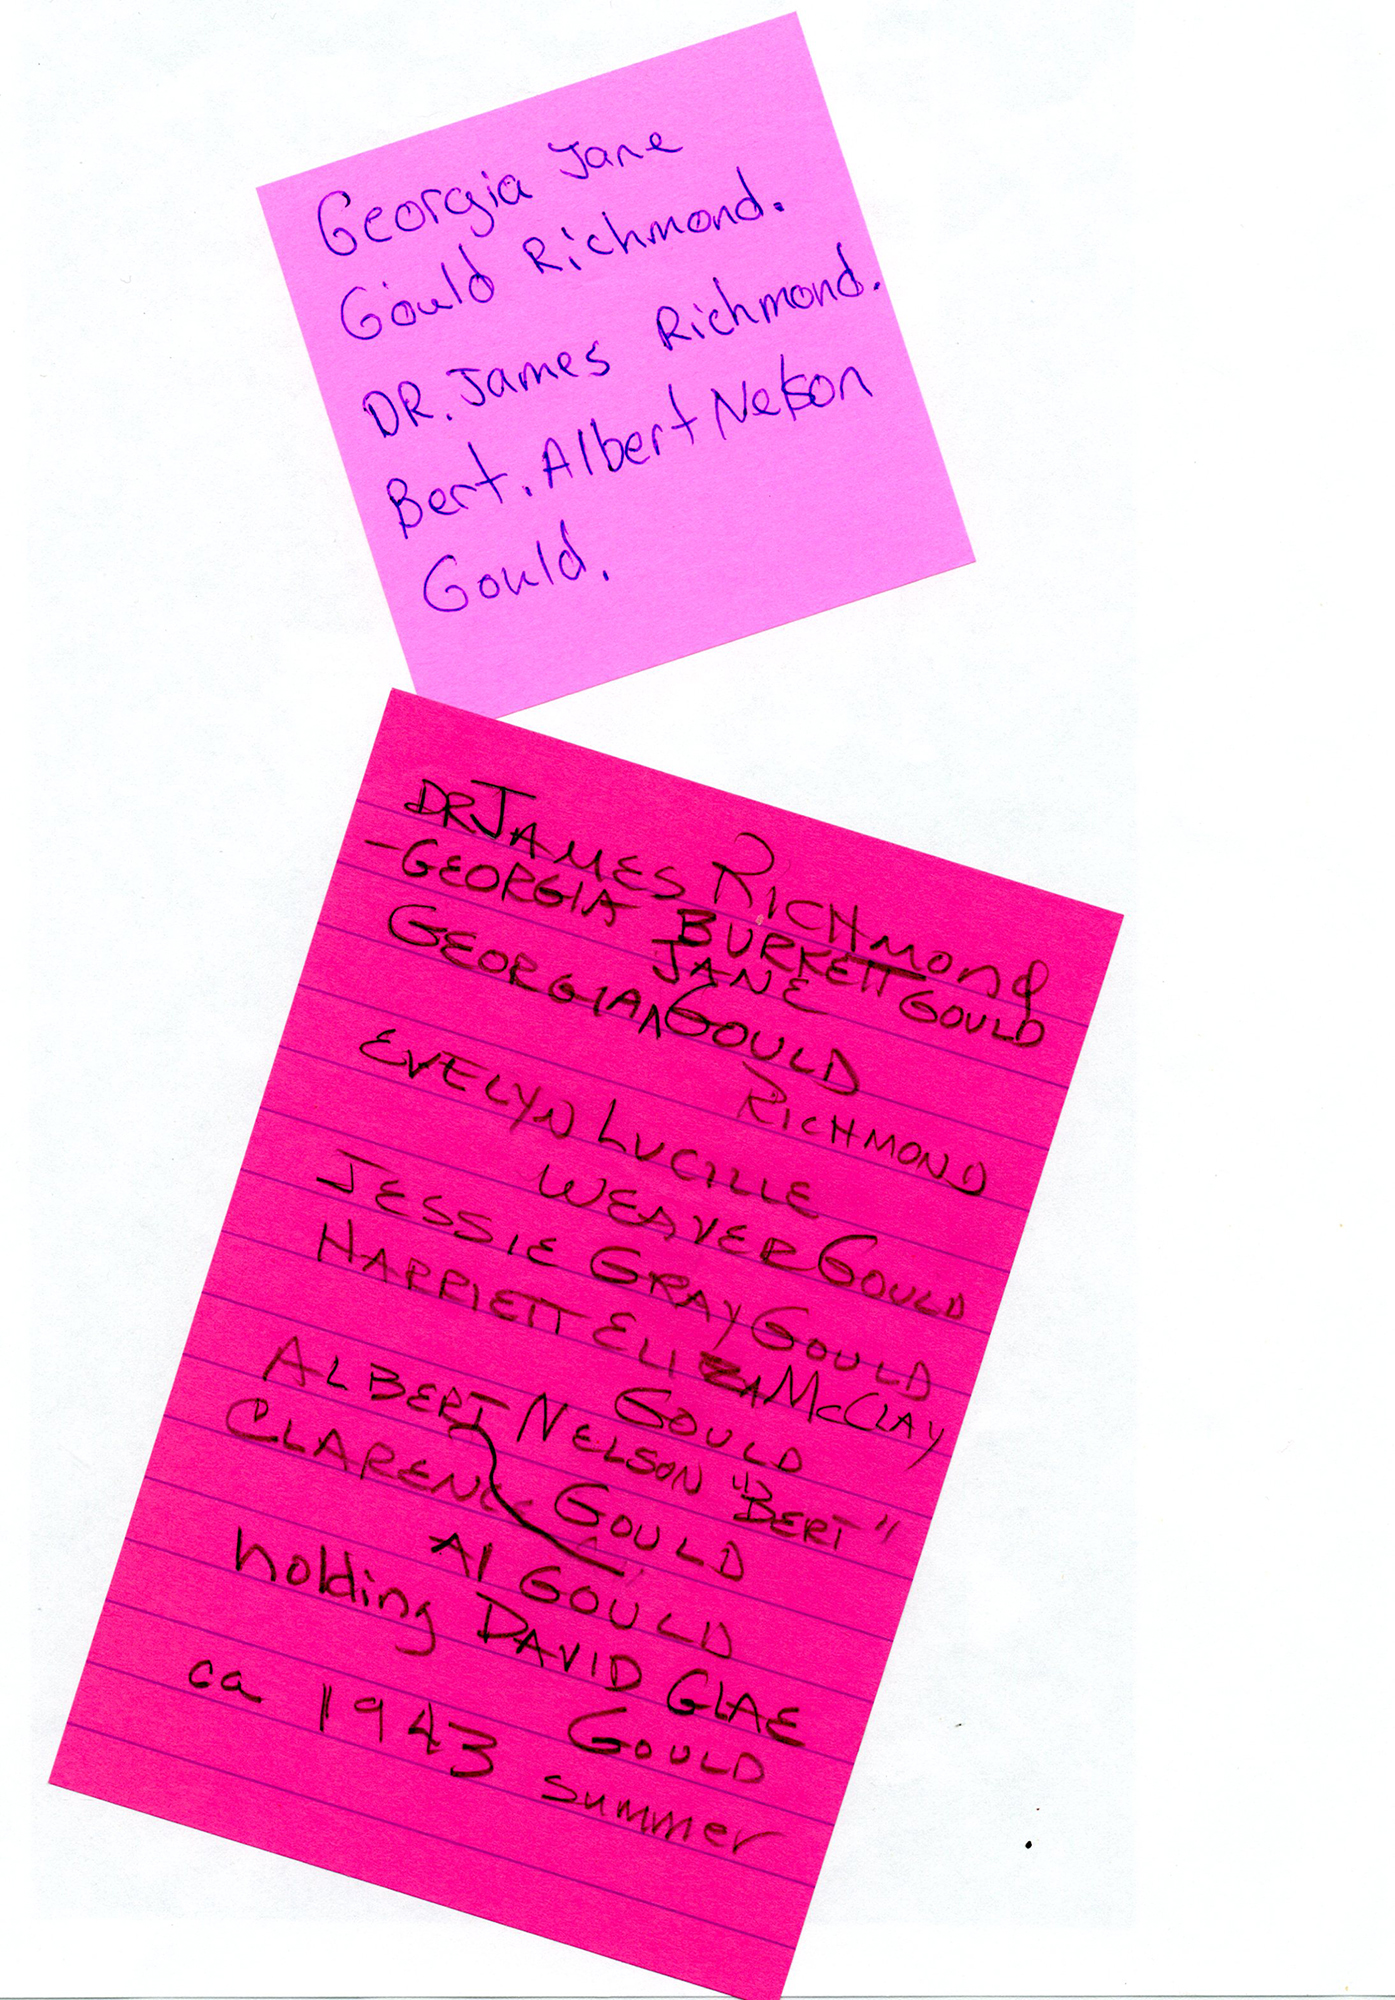 Georgia Jane
Gould Richmond.
DR. James Richmond.
Bert. Albert Nelson
Gould.
DR JAMES RICHMOND
-GEORGIA BURKETT GOULD
JANE
GEORGIA ^ GOULD
RICHMOND
EVELYN LUCILLE
WEAVER GOULD
JESSIE GRAY GOULD
HARRIETT ELIZA McCLAY
GOULD
ALBERT NELSON "BERT"
CLARENCE GOULD
Al GOULD
holding DAVID GLAE
GOULD
ca 1943 summer